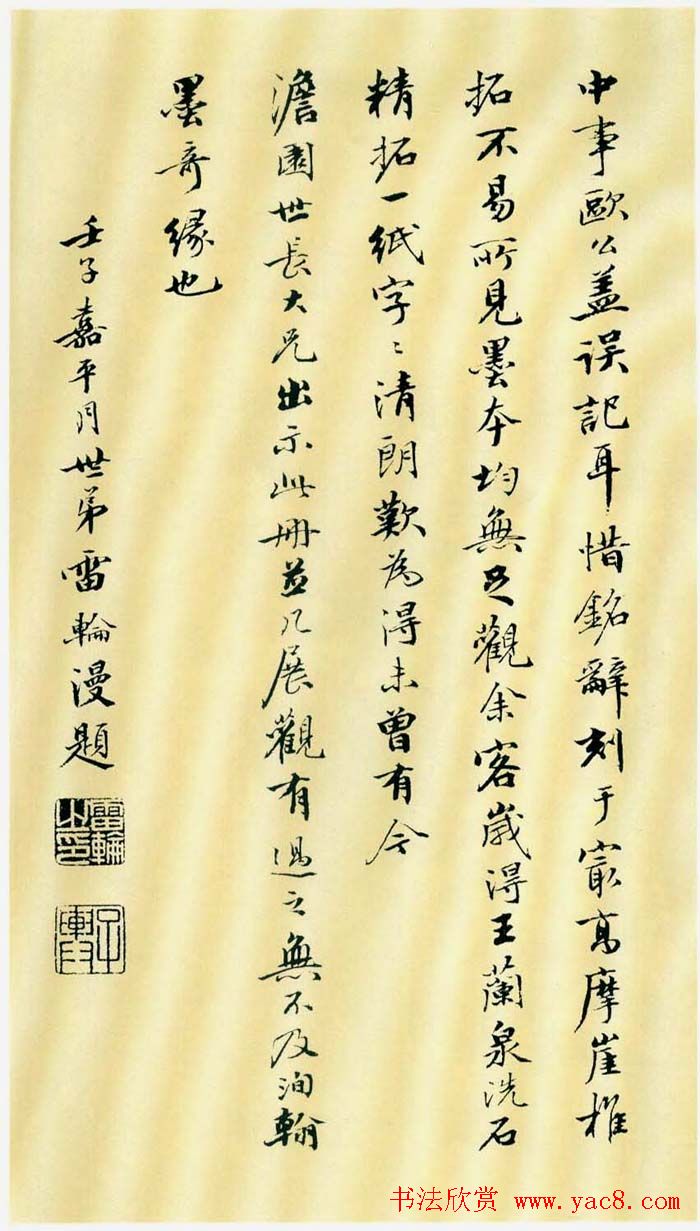 中事歐公蓋误記耳惜銘辭刻于寂高摩崖椎
拓不易所見墨本均無足觀余客嵗得王蘭泉洗石
精拓一紙字〻清朗歎為得未曾有今
澹園世長大兄出示此冊並几展觀有過之無不及洵翰
墨奇緣也
壬子嘉平月世弟雷輪漫題
雷輪之印
书法欣赏 www.yac8.com